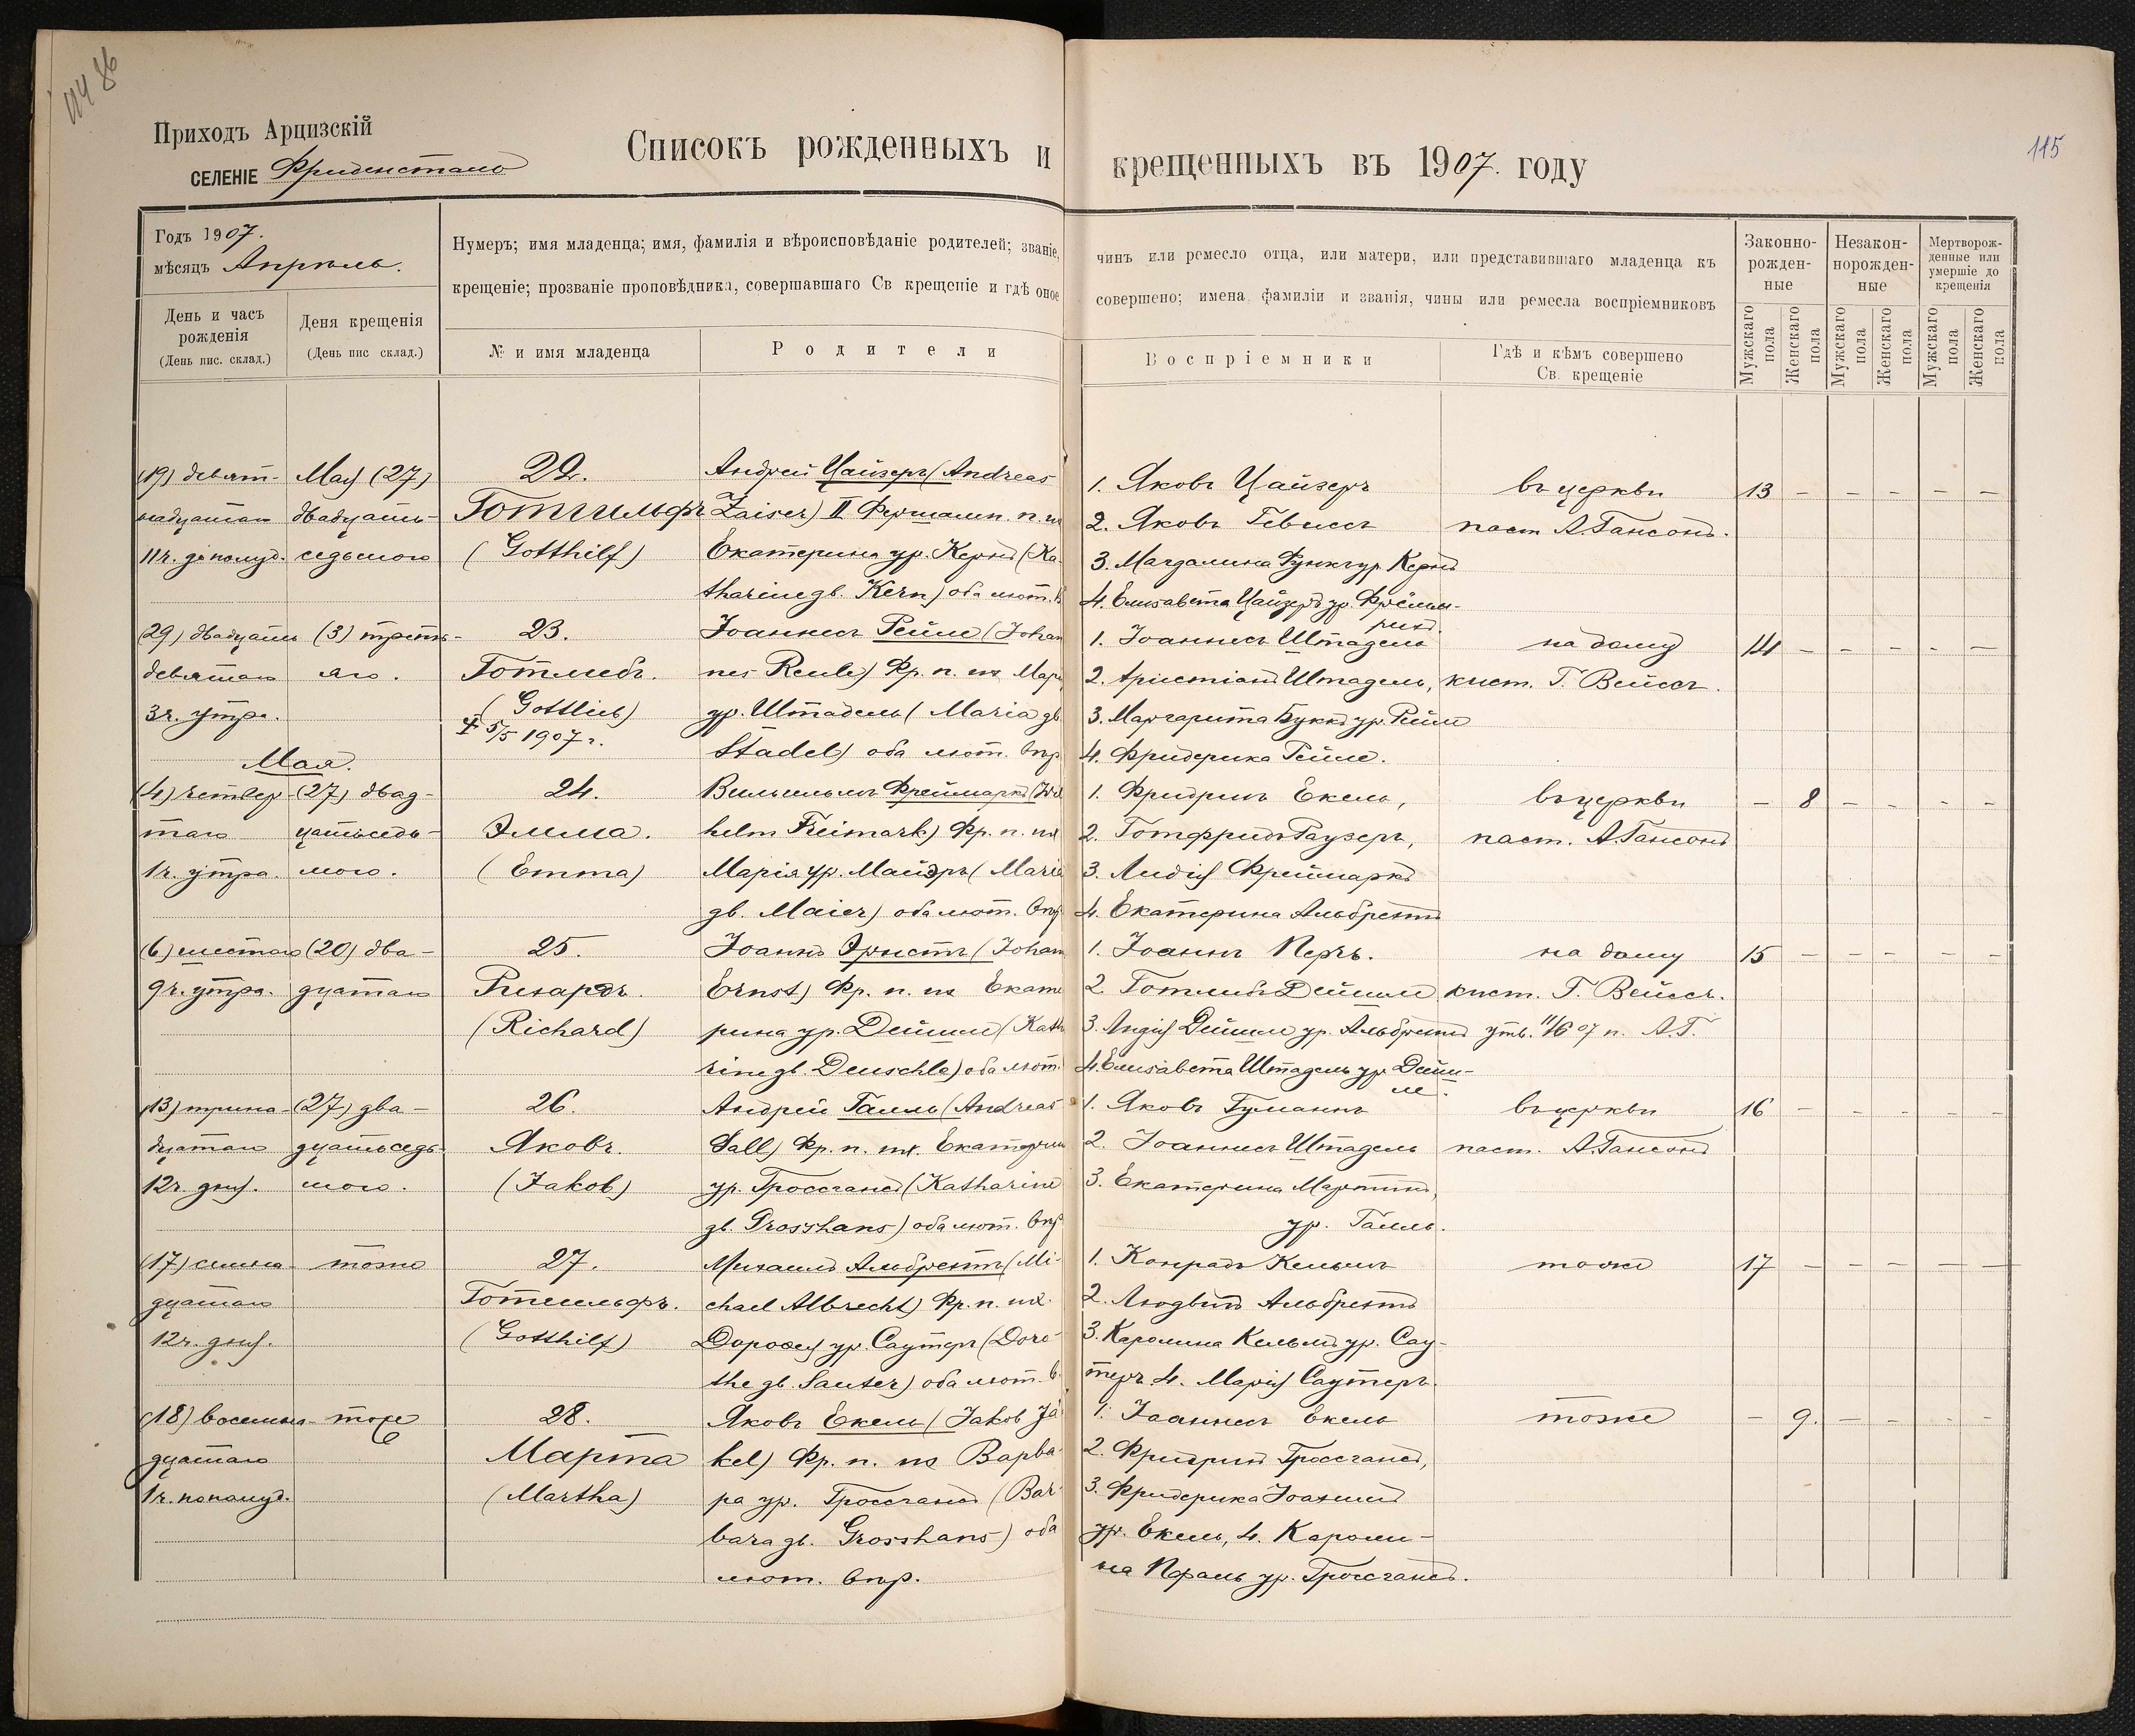 114 86
Приходъ Арцизскій
СЕЛЕНІЕ Фриденсталь
Списокъ рожденныхъ и крещенныхъ въ 1907. году
115
Годъ 1907.
мѣсяцъ Апрѣль.
День и часъ рожденія (День пис. склад.)
Деня крещенія (День пис склад.)
Нумеръ; имя младенца; имя, фамилія и вѣроисповѣданіе родителей; званіе,
крещеніе; прозваніе проповѣдника, совершавшаго Св крещеніе и гдѣ оное
№ и имя младенца
Родители
чинъ или ремесло отца, или матери, или представившаго младенца къ
совершено; имена фамиліи и званія, чины или ремесла воспріемниковъ
Воспріемники
Гдѣ и кѣмъ совершено Св. крещеніе
Законно-рожден-ные
Незакон-норожден-ные
Мертворож-денные или умершіе до крещенія
Мужскаго пола
Женскаго пола
Мужскаго пола
Женскаго пола
Мужскаго пола
Женскаго пола
(19) девят-
надцатаго
11 ч. до полуд.
Мая (27)
двадцать-
седьмого
22.
Готгильфъ
(Gotthilf)
Андрей Цайзеръ (Andreas
Zaiser) II п. и
Екатерина ур. Кернъ (Ka-
tharine gb. Kern) оба лют.
1. Яковъ Цайзеръ
2. Яковъ Гевиссъ
3. Магдалина Функъ ур. Кернъ
4. Елисавета Цайзеръ ур.
въ церкви
паст А. Гансонъ.
13 – – – – –
(29) двадцать
девятаго
3 ч. утра.
(3) треть-
яго.
23.
Готлибъ.
(Gottlieb)
† 5/5 1907 г.
Іоаннесъ Рейле (Johan
nes Reule) Фр. п. их Мар
ур. Штадель (Maria gb
Stadel) оба лют. впр
1. Іоаннесъ Штадель
2. Христіанъ Штадель,
3. Маргарита Букъ ур. Рейле
4. Фридерика Рейле.
на дому
кист. Г. Вейссъ.
14 – – – – –
Мая.
(4) четвер-
таго
1 ч. утра.
(27) двад-
цатьседь-
мого.
24.
Эмма.
(Emma)
Вильгельмъ Фреймаркъ (Wil
helm Freimark) Фр. п. их
Марія ур. Майэръ (Maria
gb. Maier) оба лют. впр
1. Фридрихъ Екель,
2. Готфридъ Раузеръ,
3. Лидія Фреймаркъ
4. Екатерина Альбрехтъ
въ церкви
паст. А. Гансонъ
– 8 – – – –
(6) шестаго
9 ч. утра.
(20) два-
дцатаго
25.
Рихардъ.
(Richard)
Іоаннъ Эрнстъ (Johan
Ernst) Фр. п. их Екате
рина ур. Дейшле (Kath
rine gb. Deuschle) оба лют.
1. Іоаннъ Перъ.
2. Готлибъ Дейшле
3. Лидія Дейшле ур. Альбрехтъ
4. Елисавета Штадель ур. Дейш-
ле.
на дому
кист. Г. Вейссъ.
утв. 11/6 07 п. А. Г.
15 – – – – –
(13) трина-
дцатаго
12 ч. дня.
(27) два-
дцатьседь-
мого.
26.
Яковъ.
(Jakob)
Андрей Галль (Andreas
Gall) Фр. п. их. Екатерин
ур. Гроссгансъ (Katharine
gb. Grosshans) оба лют. впр
1. Яковъ Гуманнъ
2. Іоаннесъ Штадель
3. Екатерина Мартинъ,
ур. Галль.
въ церкви
паст. А. Гансонъ
16 – – – – –
(17) семна-
дцатаго
12 ч. дня.
тоже
27.
Готгильфъ.
(Gotthilf)
Михаилъ Альбрехтъ (Mi-
chael Albrecht) Фр. п. их.
Доротея ур. Саутеръ (Doro-
the gb. Sauter) оба лют. в.
1. Конрадъ Кельмъ
2. Людвигъ Альбрехтъ
3. Каролина Кельмъ ур. Сау-
теръ 4. Марія Саутеръ.
тоже
17 – – – – –
(18) восемна-
дцатаго
1 ч. по полуд.
тоже
28.
Марта
(Martha)
Яковъ Екель (Jakob Jä
kel) Фр. п. их Варва-
ра ур. Гроссгансъ (Bar-
bara gb. Grosshans) оба
лют. впр.
1. Іоаннесъ Екель
2. Фридрихъ Гроссгансъ,
3. Фридерика
ур. Екель, 4. Кароли-
на Пфаль ур. Гроссгансъ.
тоже
– 9. – – – –